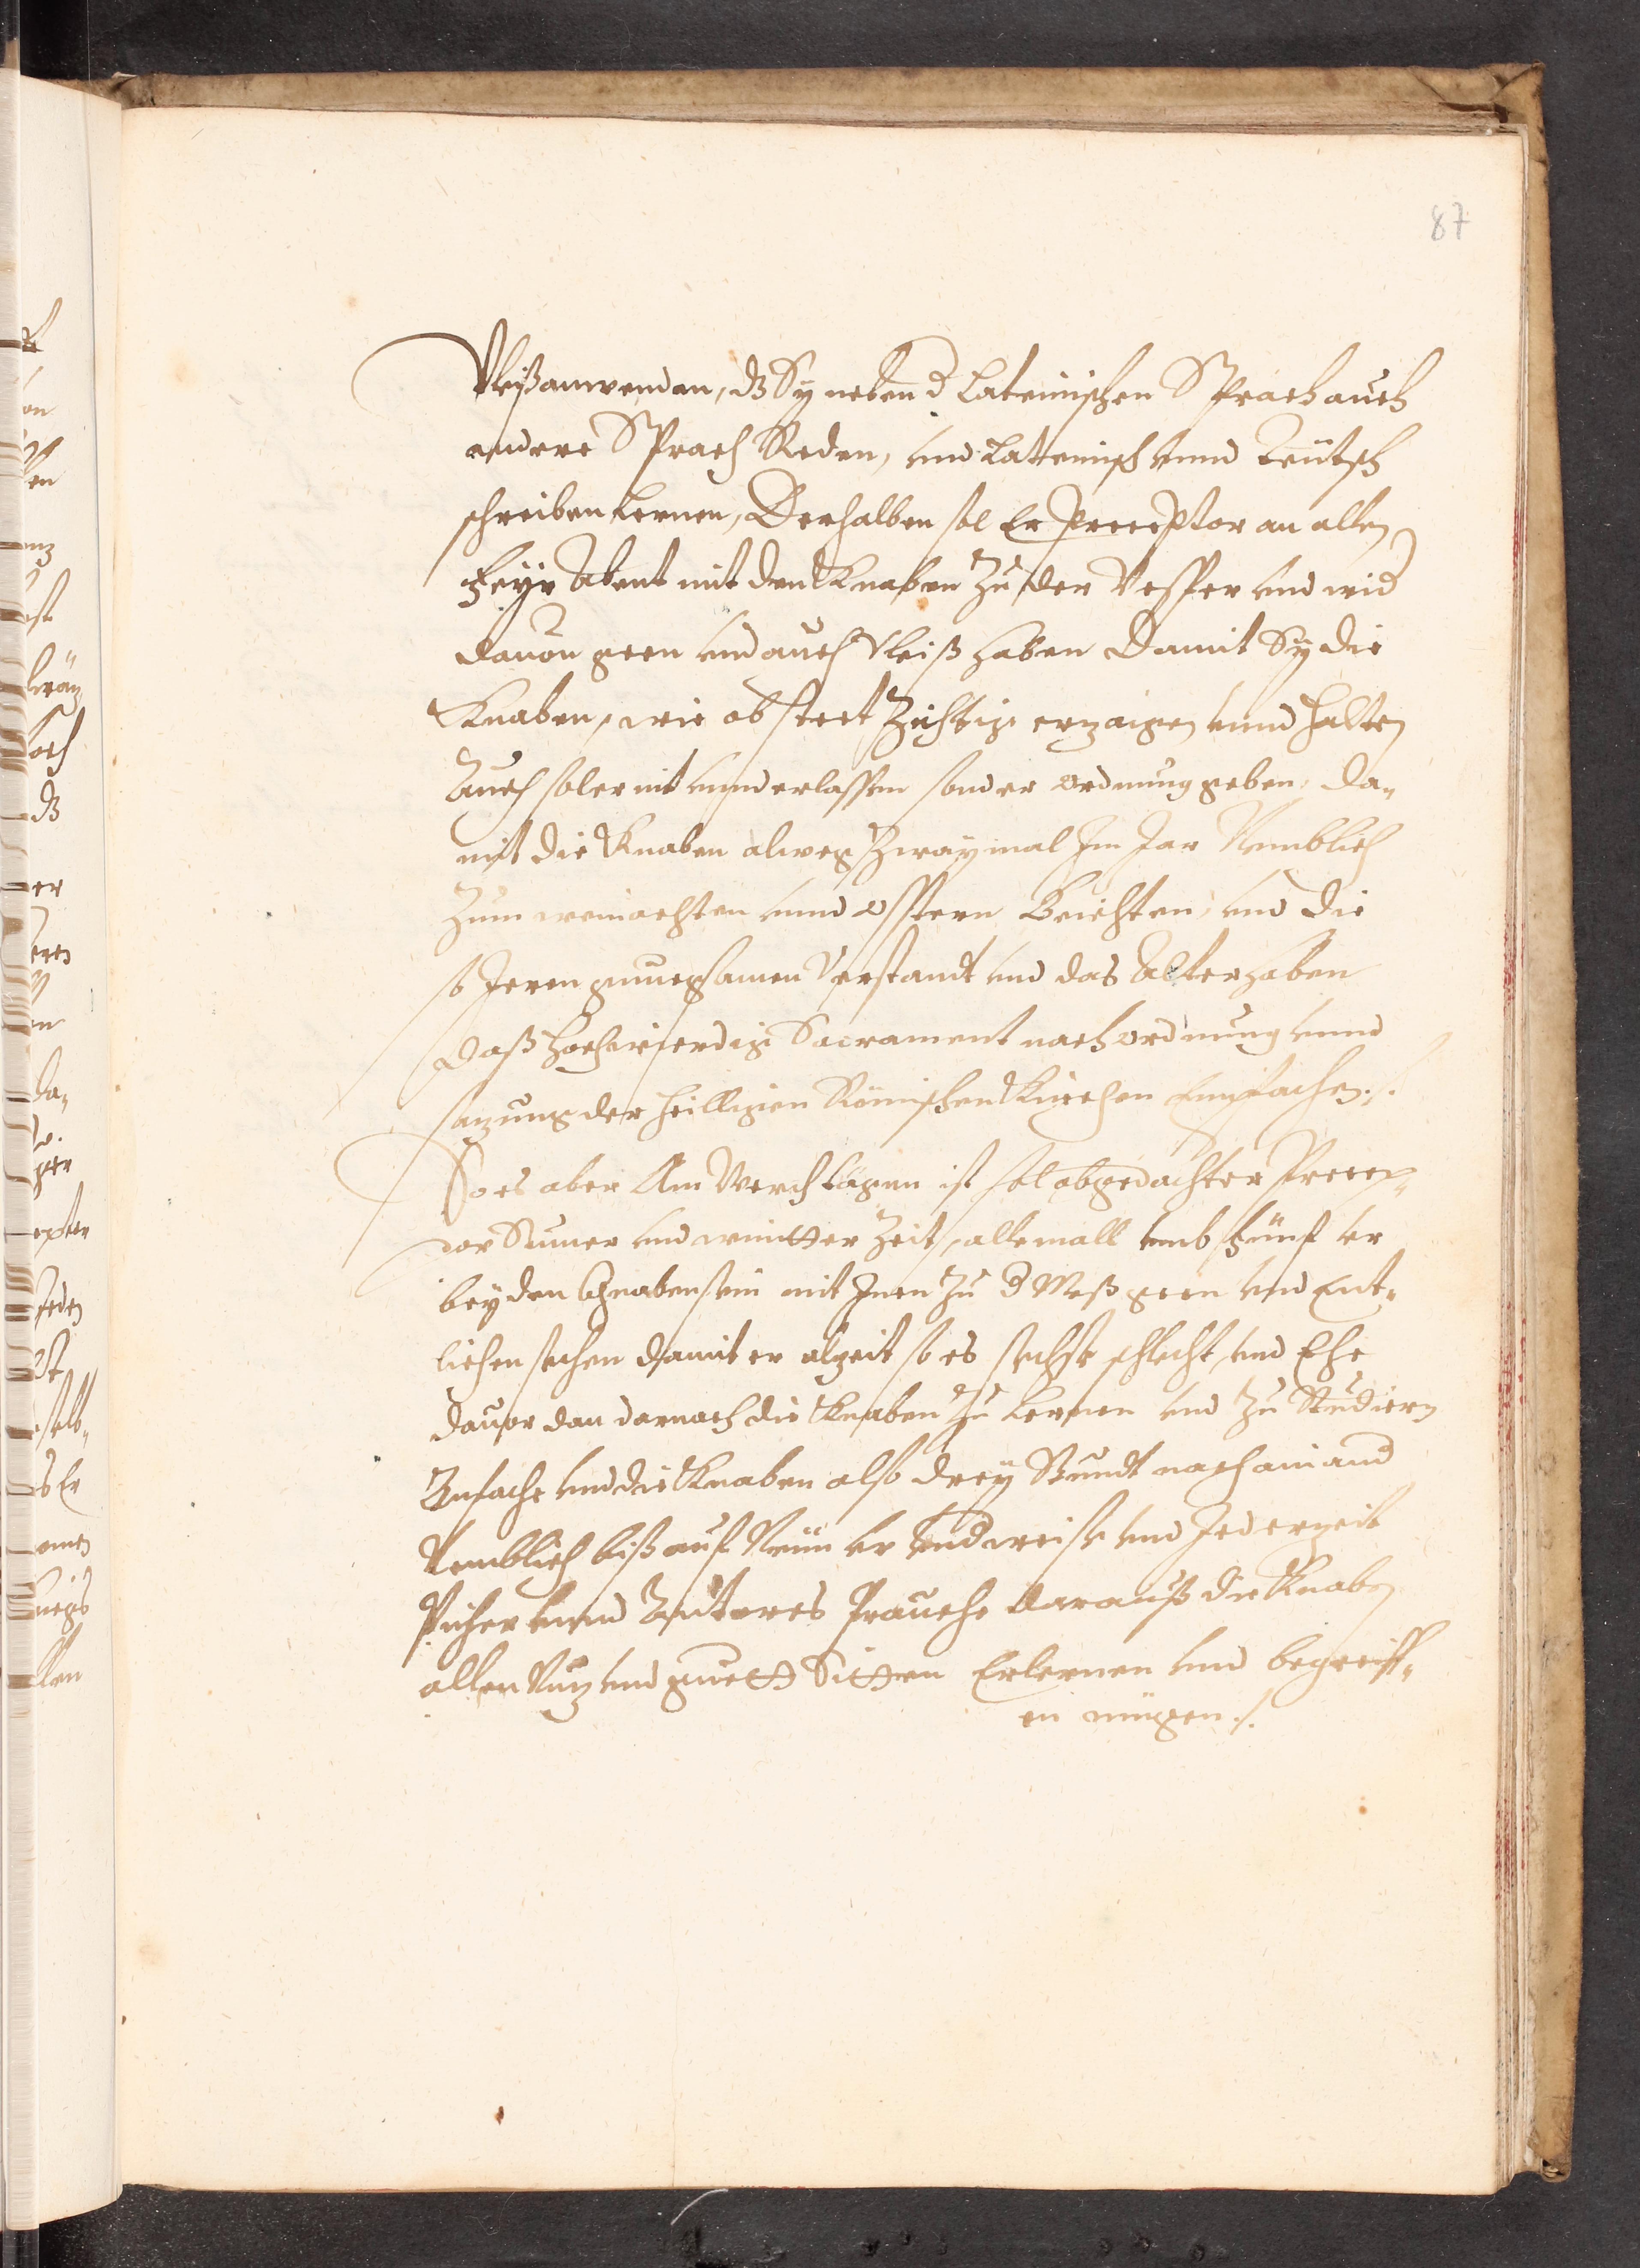 87
Vleiß anwenden, dz Sy neben d Lateinischen Sprach auch
andere Sprach Reden, vnd Latteinisch vnnd Teütsch
schreiben Lernen, Derhalben sol Er Preceptor an allen
Feyr Abent mit den Knaben Zu der Vesper vnd wid
dauon geen vnd auch Vleiß haben Damit Sy die
Knaben, wie ob steet Zichtig erzaigen vnnd halten
Auch sol er nit vnnderlassen sonder ordnung geben, da„
mit die Knaben alweg Zwaymal Im Jar Nemblich
Zum weinachten vnnd osstern Beichten, vnd die
so Jeren gnuegsamen Verstandt vnd das Alter haben
daß hochwierdig Sacrament nach ordnung vnnd
sazung der heilligen Römischen Kirchen Empfachen ./.
So es aber Am Werchtägen ist sol obgedachter Precep„
dor Sumer vnd wintter Zeit, allemall vmb Fünf vr
bey den Chnaben sein mit Inen Zu d Meß geen vnd Ent„
lichen sechen damit er alzeit so es sechse schlecht, vnd Ehe
dauor dan darnach die Knaben Zu Lernen vnd Zu Studiern
Anfache vnd die Knaben also drey Stundt nach ainand
Nemblich biß auf Neün vr vnd weise vnd Jederzeit
Picher vnnd Autores Prauche darauß die Knaben
allen Nuz vnd guett Sitten Erlernen vnd begreiff„
en mügen ./.